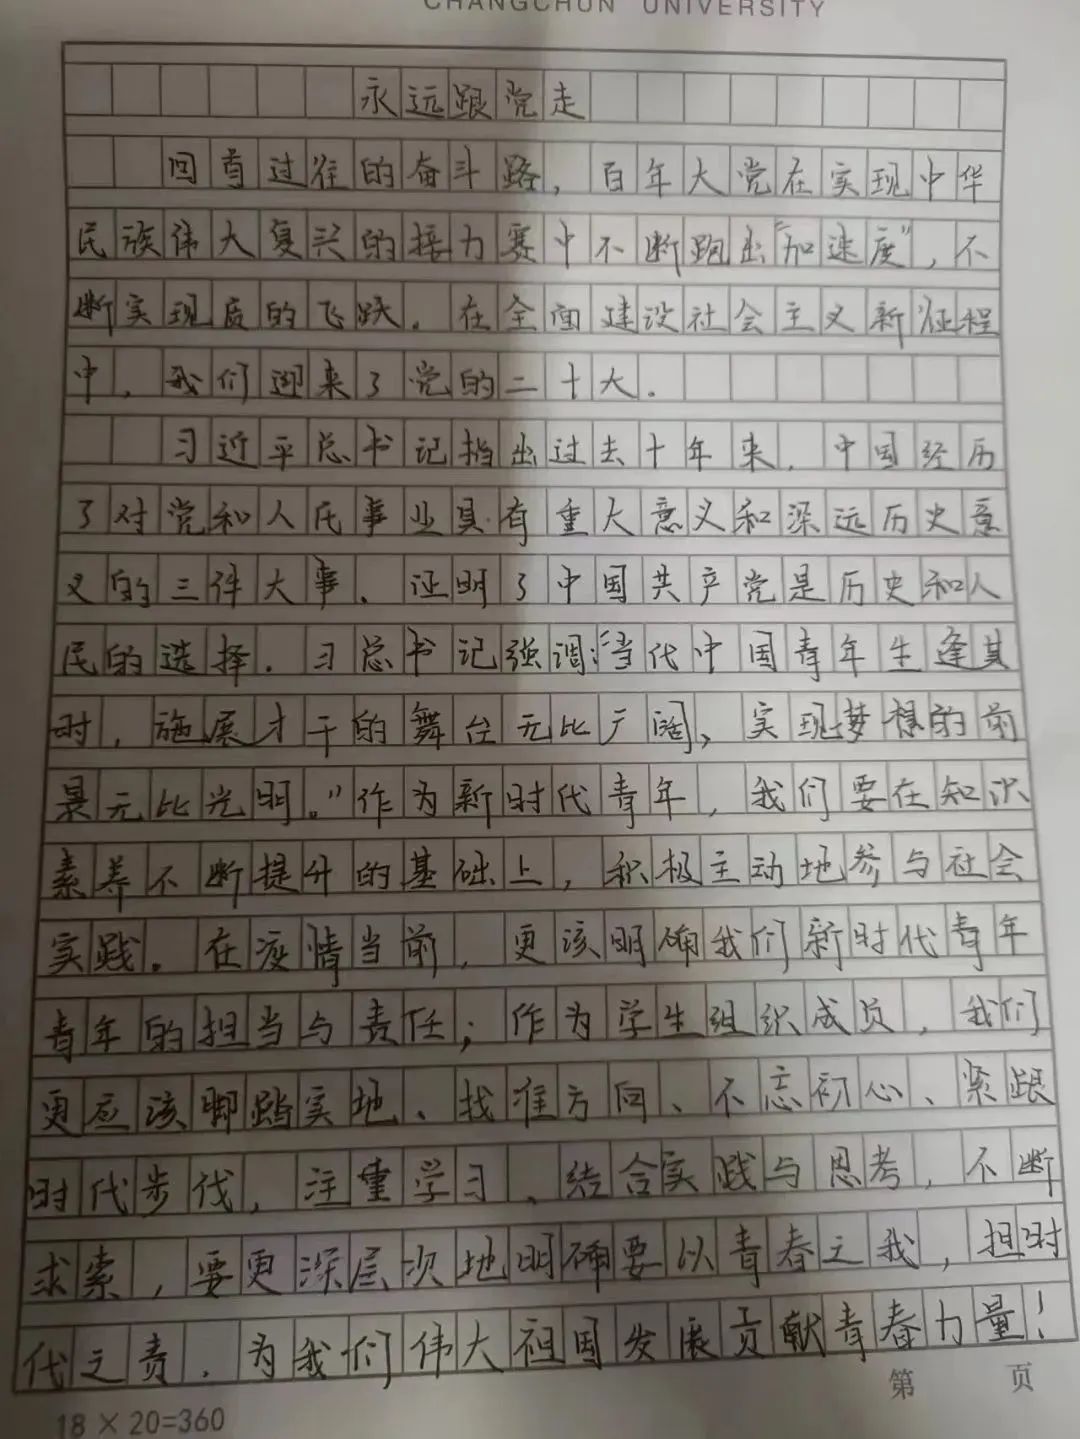 CHANGCHUN UNIVERSITY
永远跟党走
回首过往的奋斗路，百年大党在实现中华
民族伟大复兴的接力赛中不断跑出"加速度"，不
断实现质的飞跃．在全面建设社会主义新征程
中，我们迎来了党的二十大．
习近平总书记指出过去十年来，中国经历
了对党和人民事业具有重大意义和深远历史意
义的三件大事．证明了中国共产党是历史和人
民的选择．习总书记强调："当代中国青年生逢其
时，施展才干的舞台无比广阔、实现梦想的前
景无比光明。"作为新时代青年，我们要在知识
素养不断提升的基础上，积极主动地参与社会
实践．在疫情当前，更该明确我们新时代青年
青年的担当与责任；作为学生组织成员，我们
更应该脚踏实地、找准方向、不忘初心、紧跟
时代步伐，注重学习、结合实践与思考，不断
求索，要更深层次地明确要以青春之我，担时
代之责．为我们伟大祖国发展贡献青春力量！
第 页
18×20=360